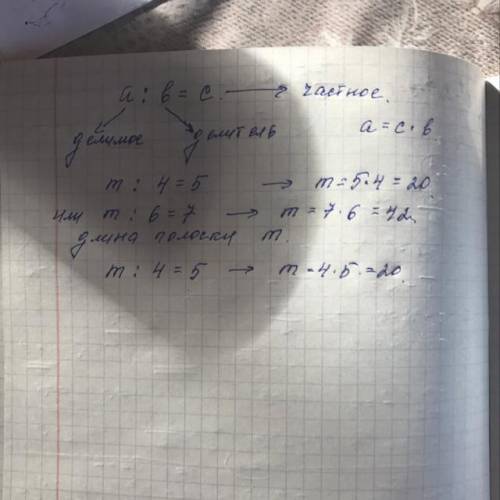 а : в = с. → частное.
делимое делитель а = с · в
m : 4 = 5 → m = 5 · 4 = 20.
или m : 6 = 7 → m = 7 · 6 = 42.
длина полоски m.
m : 4 = 5 → m = 4 · 5 = 20.